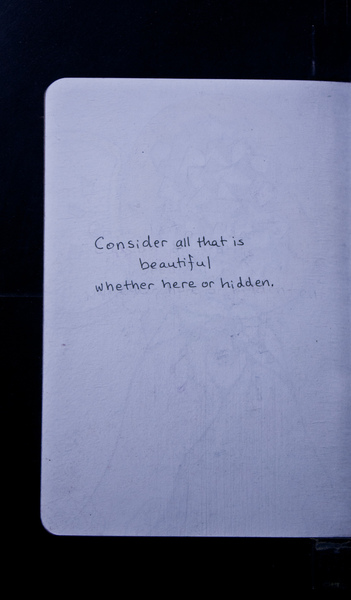 Consider all that is
beautiful
whether here or hidden.